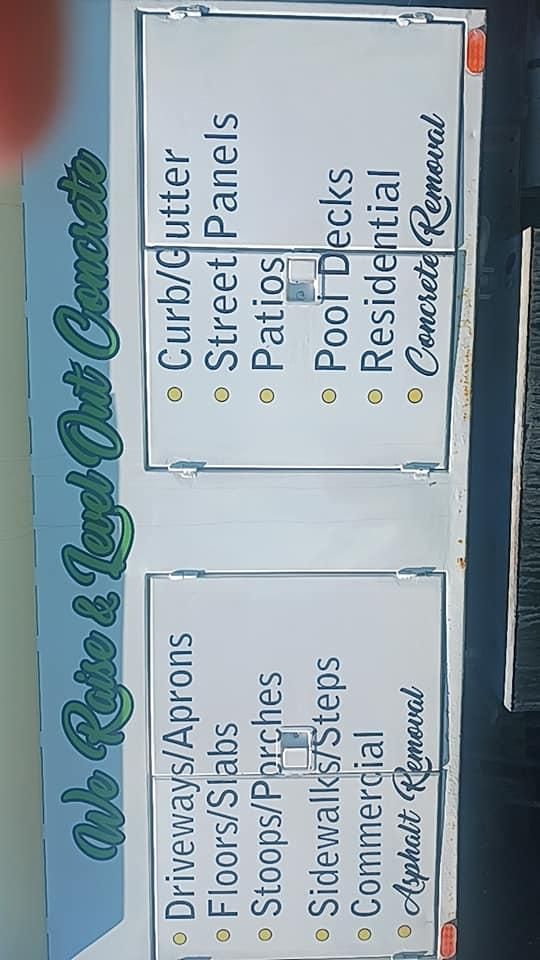 We Raise & Level Out Concrete
Driveways/Aprons
Floors/Slabs
Stoops/Porches
Sidewalks/Steps
Commercial
Asphalt Removal
Curb/Gutter
Street Panels
Patios
Pool Decks
Residential
Concrete Removal